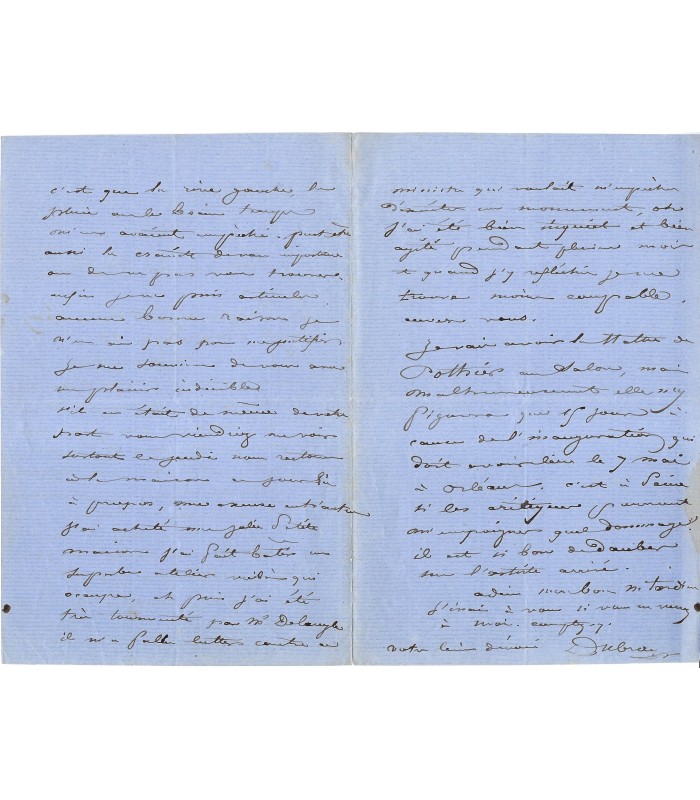 c'est que la rive gauche, la
pluie ou le beau temps
m'en avaient empêché. peut être
aussi la crainte de vous importuner
ou de ne pas vous trouver.
enfin je ne puis articuler
aucune bonne raison je
n'en ai pas pour me justifier
je me souviens de vous avec
un plaisir indicible
s'il en était de même de votre
part vous viendriez me voir
surtout le jeudi nous restons
à la maison ce jour là
à propos, une excuse entre autre
j'ai acheté une jolie petite
maison j'ai fait bâtir un
superbe atelier voilà qui
occupe, et puis j'ai été
très tourmenté par Mr Delangle
il m'a fallu lutter contre ce
ministre qui voulait m'empêcher
d'exécuter un monument,
j'ai été bien inquiet et bien
agité pendant plusieurs mois
et quand j'y réfléchis je me
trouve moins coupable
envers vous.
je vais avoir la statue de
Pothier au Salon, mais
malheureusement elle n'y
figurera que 15 jours à
cause de l'inauguration qui
doit avoir lieu le 7 mai
à Orléans. c'est à peine
si les critiques pourront
m'empoigner quel dommage
il est si bon de dauber
sur l'artiste arrivé.
adieu mon bon Mr
j'irai à vous si vous ne venez
à moi. comptez-y
votre bien dévoué Dubray